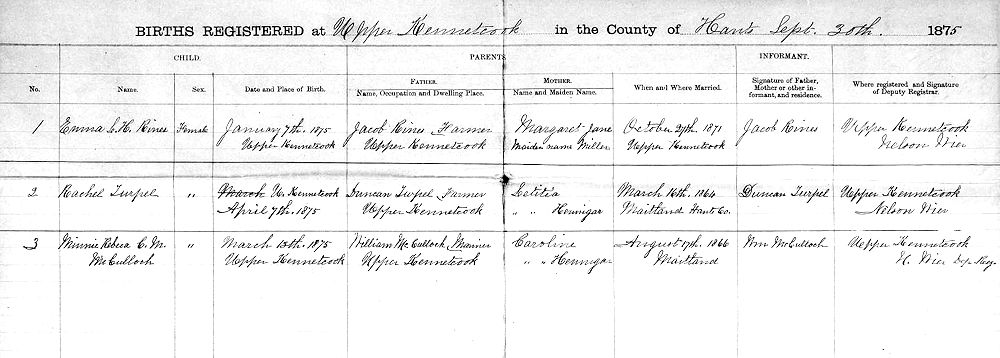 BIRTHS REGISTERED at Upper Kennetcook in the County of Hants Sept. 30th. 1875
CHILD. PARENTS INFORMANT.
No. Name. Sex. Date and Place of Birth. FATHER. Name, Occupation and Dwelling Place. MOTHER. Name and Maiden Name. When and Where Married. Signature of Father, Mother or other informant, and residence. Where registered and Signature of Deputy Registrar.
1 Emma L. H. Rines Female January 7th. 1875 Jacob Rines Farmer Margaret Jane October 27th. 1871 Jacob Rines Upper Kennetcook
Upper Kennetcook Upper Kennetcook Maiden name Miller Upper Kennetcook Nelson Wier
2 Rachel Turpel " March U. Kennetcook Duncan Turpel Farmer Letitia March 16th. 1864 Duncan Turpel Upper Kennetcook
April 7th. 1875 Upper Kennetcook " " Hennigar Maitland Hants Co. Nelson Wier
3 Minnie Rebeca C. M. " March 15th. 1875 William McCulloch Mariner Caroline August 17th. 1866 Wm McCulloch Upper Kennetcook
McCulloch Upper Kennetcook Upper Kennetcook " " Hennigar Maitland N. Wier Dep. Reg.